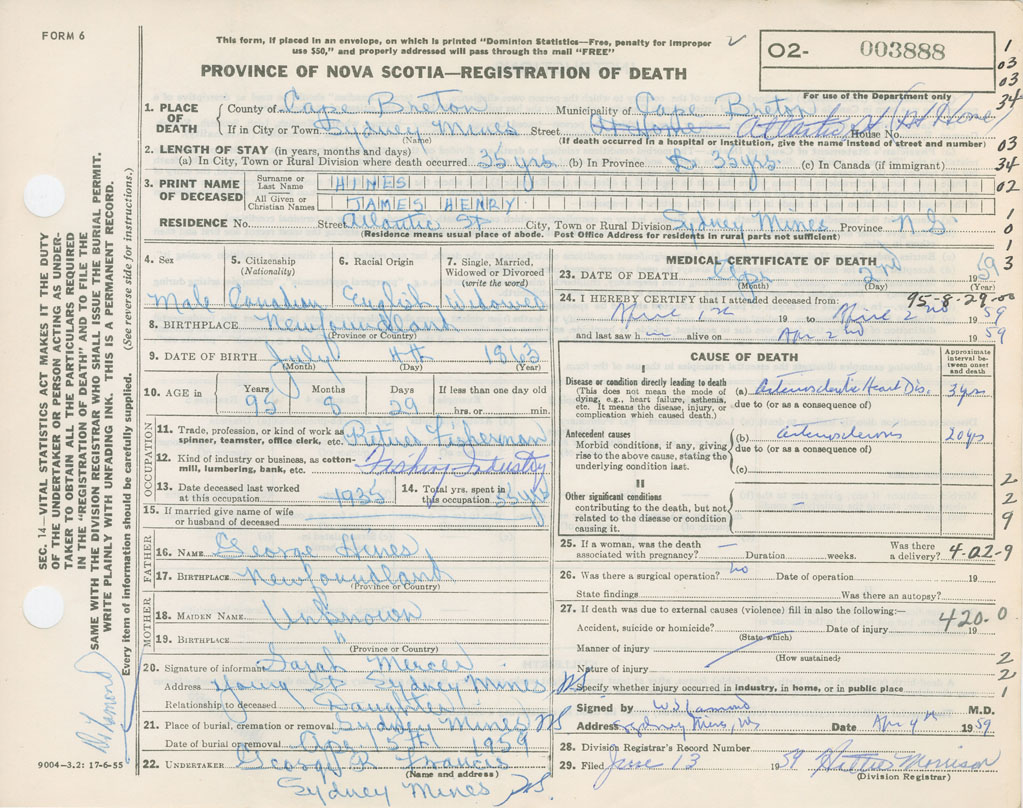 FORM 6
This form, if placed in an envelope, on which is printed "Dominion Statistics—Free, penalty for improper
use $50," and properly addressed will pass through the mail "FREE"
O2- 003888
For use of the Department only
PROVINCE OF NOVA SCOTIA—REGISTRATION OF DEATH
1
03
03
34
03
34
02
1
0
1
3
1. PLACE OF DEATH
County of Cape Breton Municipality of Cape Breton
If in City or Town Sydney Mines Street At Home Atlantic St At Home House No.
(Name) (If death occurred in a hospital or institution, give the name instead of street and number)
2. LENGTH OF STAY (in years, months and days)
(a) In City, Town or Rural Division where death occurred 35 yrs (b) In Province 35 yrs (c) In Canada (if immigrant)
3. PRINT NAME OF DECEASED
Surname or Last Name HINES
All Given or Christian Names JAMES HENRY
RESIDENCE No. Street Atlantic St City, Town or Rural Division Sydney Mines Province N S
(Residence means usual place of abode. Post Office Address for residents in rural parts not sufficient)
4. Sex
Male
5. Citizenship
(Nationality)
Canadian
6. Racial Origin
English
7. Single, Married,
Widowed or Divorced
(write the word)
Widowed
8. BIRTHPLACE Newfoundland
(Province or Country)
9. DATE OF BIRTH July 4th 1863
(Month) (Day) (Year)
10. AGE in Years Months Days If less than one day old
95 8 29 hrs. or min.
OCCUPATION
11. Trade, profession, or kind of work as
spinner, teamster, office clerk, etc. Retired Fisherman
12. Kind of industry or business, as cotton-
mill, lumbering, bank, etc. Fishing Industry
13. Date deceased last worked
at this occupation 1935
14. Total yrs. spent in
this occupation 55 yrs
15. If married give name of wife
or husband of deceased
FATHER
16. NAME George Hines
17. BIRTHPLACE Newfoundland
(Province or Country)
MOTHER
18. MAIDEN NAME Unknown
19. BIRTHPLACE "
(Province or Country)
20. Signature of informant Sarah Mercer
Address Young St Sydney Mines NS
Relationship to deceased Daughter
21. Place of burial, cremation or removal Sydney Mines NS
Date of burial or removal Apr 5th 1959
22. UNDERTAKER George R Francis
(Name and address)
Sydney Mines NS
MEDICAL CERTIFICATE OF DEATH
23. DATE OF DEATH Apr 2nd 1959
(Month) (Day) (Year)
95-8-29-00
24. I HEREBY CERTIFY that I attended deceased from:
April 1st 19 to April 2nd 1959
and last saw him alive on Apr 2nd 1959
CAUSE OF DEATH
Approximate
interval be-
tween onset
and death
I
Disease or condition directly leading to death
(This does not mean the mode of
dying, e.g., heart failure, asthenia,
etc. It means the disease, injury, or
complication which caused death.)
(a) Arteriosclerotic Heart Dis. 3 yrs
due to (or as a consequence of)
Antecedent causes
Morbid conditions, if any, giving
rise to the above cause, stating the
underlying condition last.
(b) Arteriosclerosis 20 yrs
due to (or as a consequence of)
(c)
II
Other significant conditions
contributing to the death, but not
related to the disease or condition
causing it.
—
2
2
9
25. If a woman, was the death
associated with pregnancy? — Duration weeks.
Was there
a delivery? 4-02-9
26. Was there a surgical operation? no Date of operation 19
State findings Was there an autopsy?
27. If death was due to external causes (violence) fill in also the following:—
420-0
Accident, suicide or homicide? Date of injury 19
(State which)
Manner of injury
(How sustained)
Nature of injury
2
2
1
Specify whether injury occurred in industry, in home, or in public place
Signed by W S Lamond M.D.
Address Sydney Mines, NS Date Apr 4th 1959
28. Division Registrar's Record Number
29. Filed June 13 1959 Hattie Morrison
(Division Registrar)
SEC. 14—VITAL STATISTICS ACT MAKES IT THE DUTY
OF THE UNDERTAKER OR PERSON ACTING AS UNDER-
TAKER TO OBTAIN ALL THE PARTICULARS REQUIRED
IN THE "REGISTRATION OF DEATH" AND TO FILE THE
SAME WITH THE DIVISION REGISTRAR WHO SHALL ISSUE THE BURIAL PERMIT.
WRITE PLAINLY WITH UNFADING INK. THIS IS A PERMANENT RECORD.
Every item of information should be carefully supplied. (See reverse side for instructions.)
Lamond
9004-3.2: 17-6-55